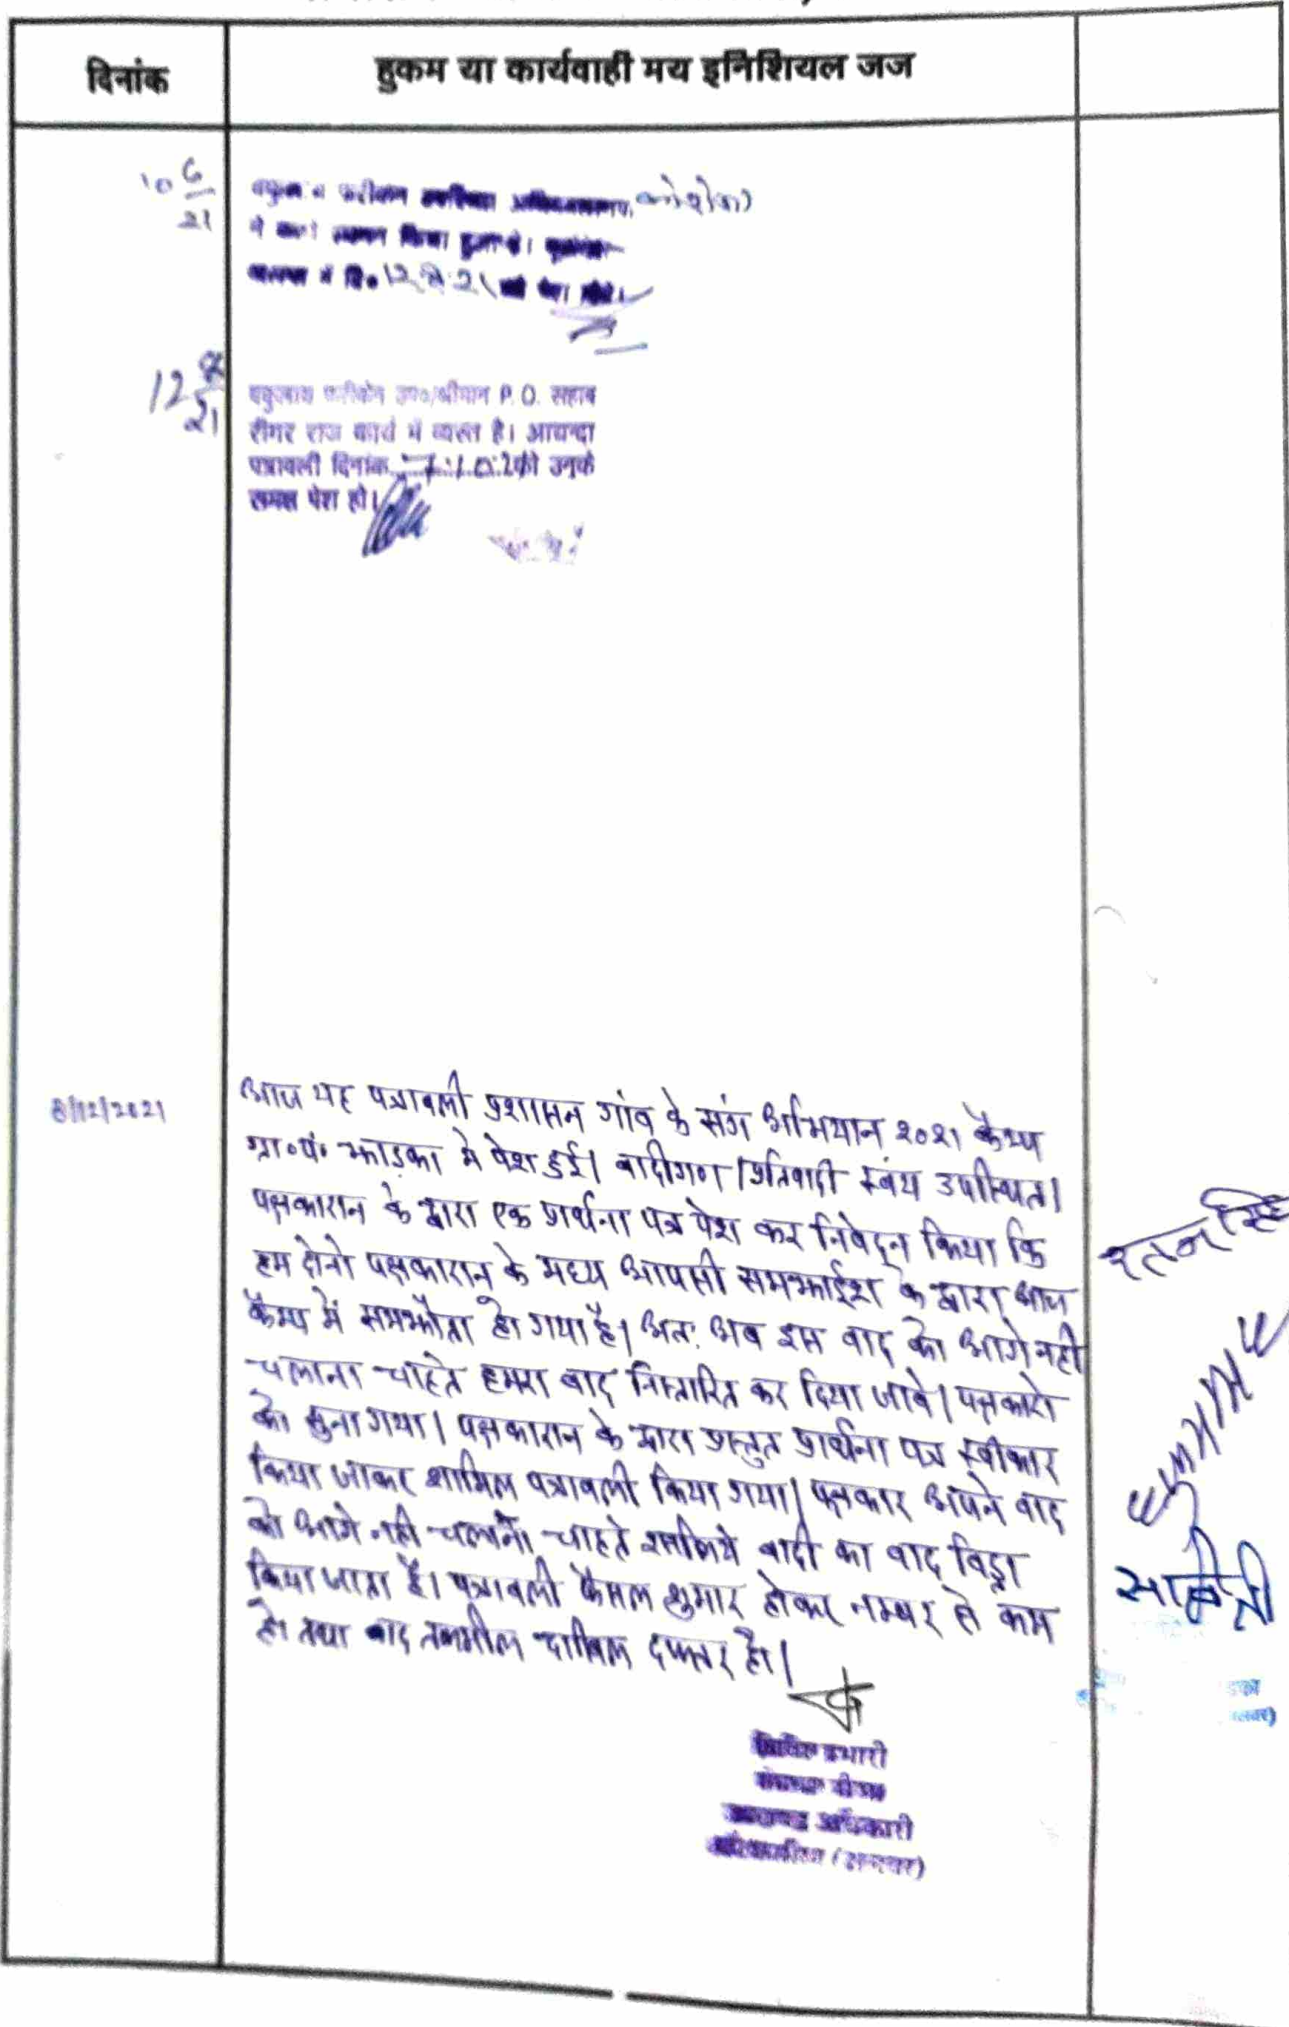 दिनांक
हुकम या कार्यवाही मय इनिशियल जज
10 6/21
फरीकैन
में हुआ है।
12 8 21
12 8/21
वकुलाय फरीकैन उप०/श्रीमान P. O. सहाब
दीगर राज कार्य में व्यस्त है। आयन्दा
पत्रावली दिनांक 7.10.21 को उनके
समक्ष पेश हो।
8/12/2021
आज यह पत्रावली प्रशासन गांव के संग अभियान २०२१ कैम्प
ग्रा०पं० झाडका मे पेश हुई। वादीगण/प्रतिवादी स्वंय उपस्थित।
पक्षकारान के द्वारा एक प्रार्थना पत्र पेश कर निवेदन किया कि
हम दोनो पक्षकारान के मध्य आपसी समझाईश के द्वारा आज
कैम्प में समझौता हो गया है। अतः अब इस वाद को आगे नही
चलाना चाहते हमरा वाद निस्तारित कर दिया जावे। पक्षकारो
को सुना गया। पक्षकारान के द्वारा प्रस्तुत प्रार्थना पत्र स्वीकार
किया जाकर शामिल पत्रावली किया गया। पक्षकार अपने वाद
को आगे नही चलाना चाहते इसलिये वादी का वाद विड्रा
किया जाता है। पत्रावली फैसल शुमार होकर नम्बर से कम
हो तथा बाद तकमील दाखिल दफ्तर हो।
रतन सिंह
सावित्री
प्रभारी
अधिकारी
(अलवर)